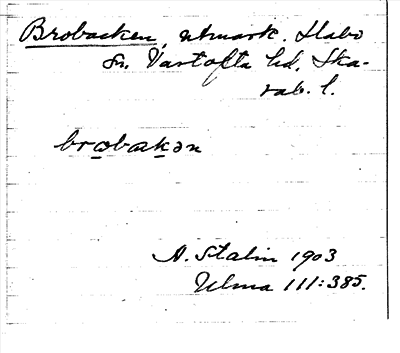 Brobacken, utmark. Habo
sn. Vartofta hd. Ska-
rab. l.
brobakən
A. Stalin 1903
Ulma 111:385.